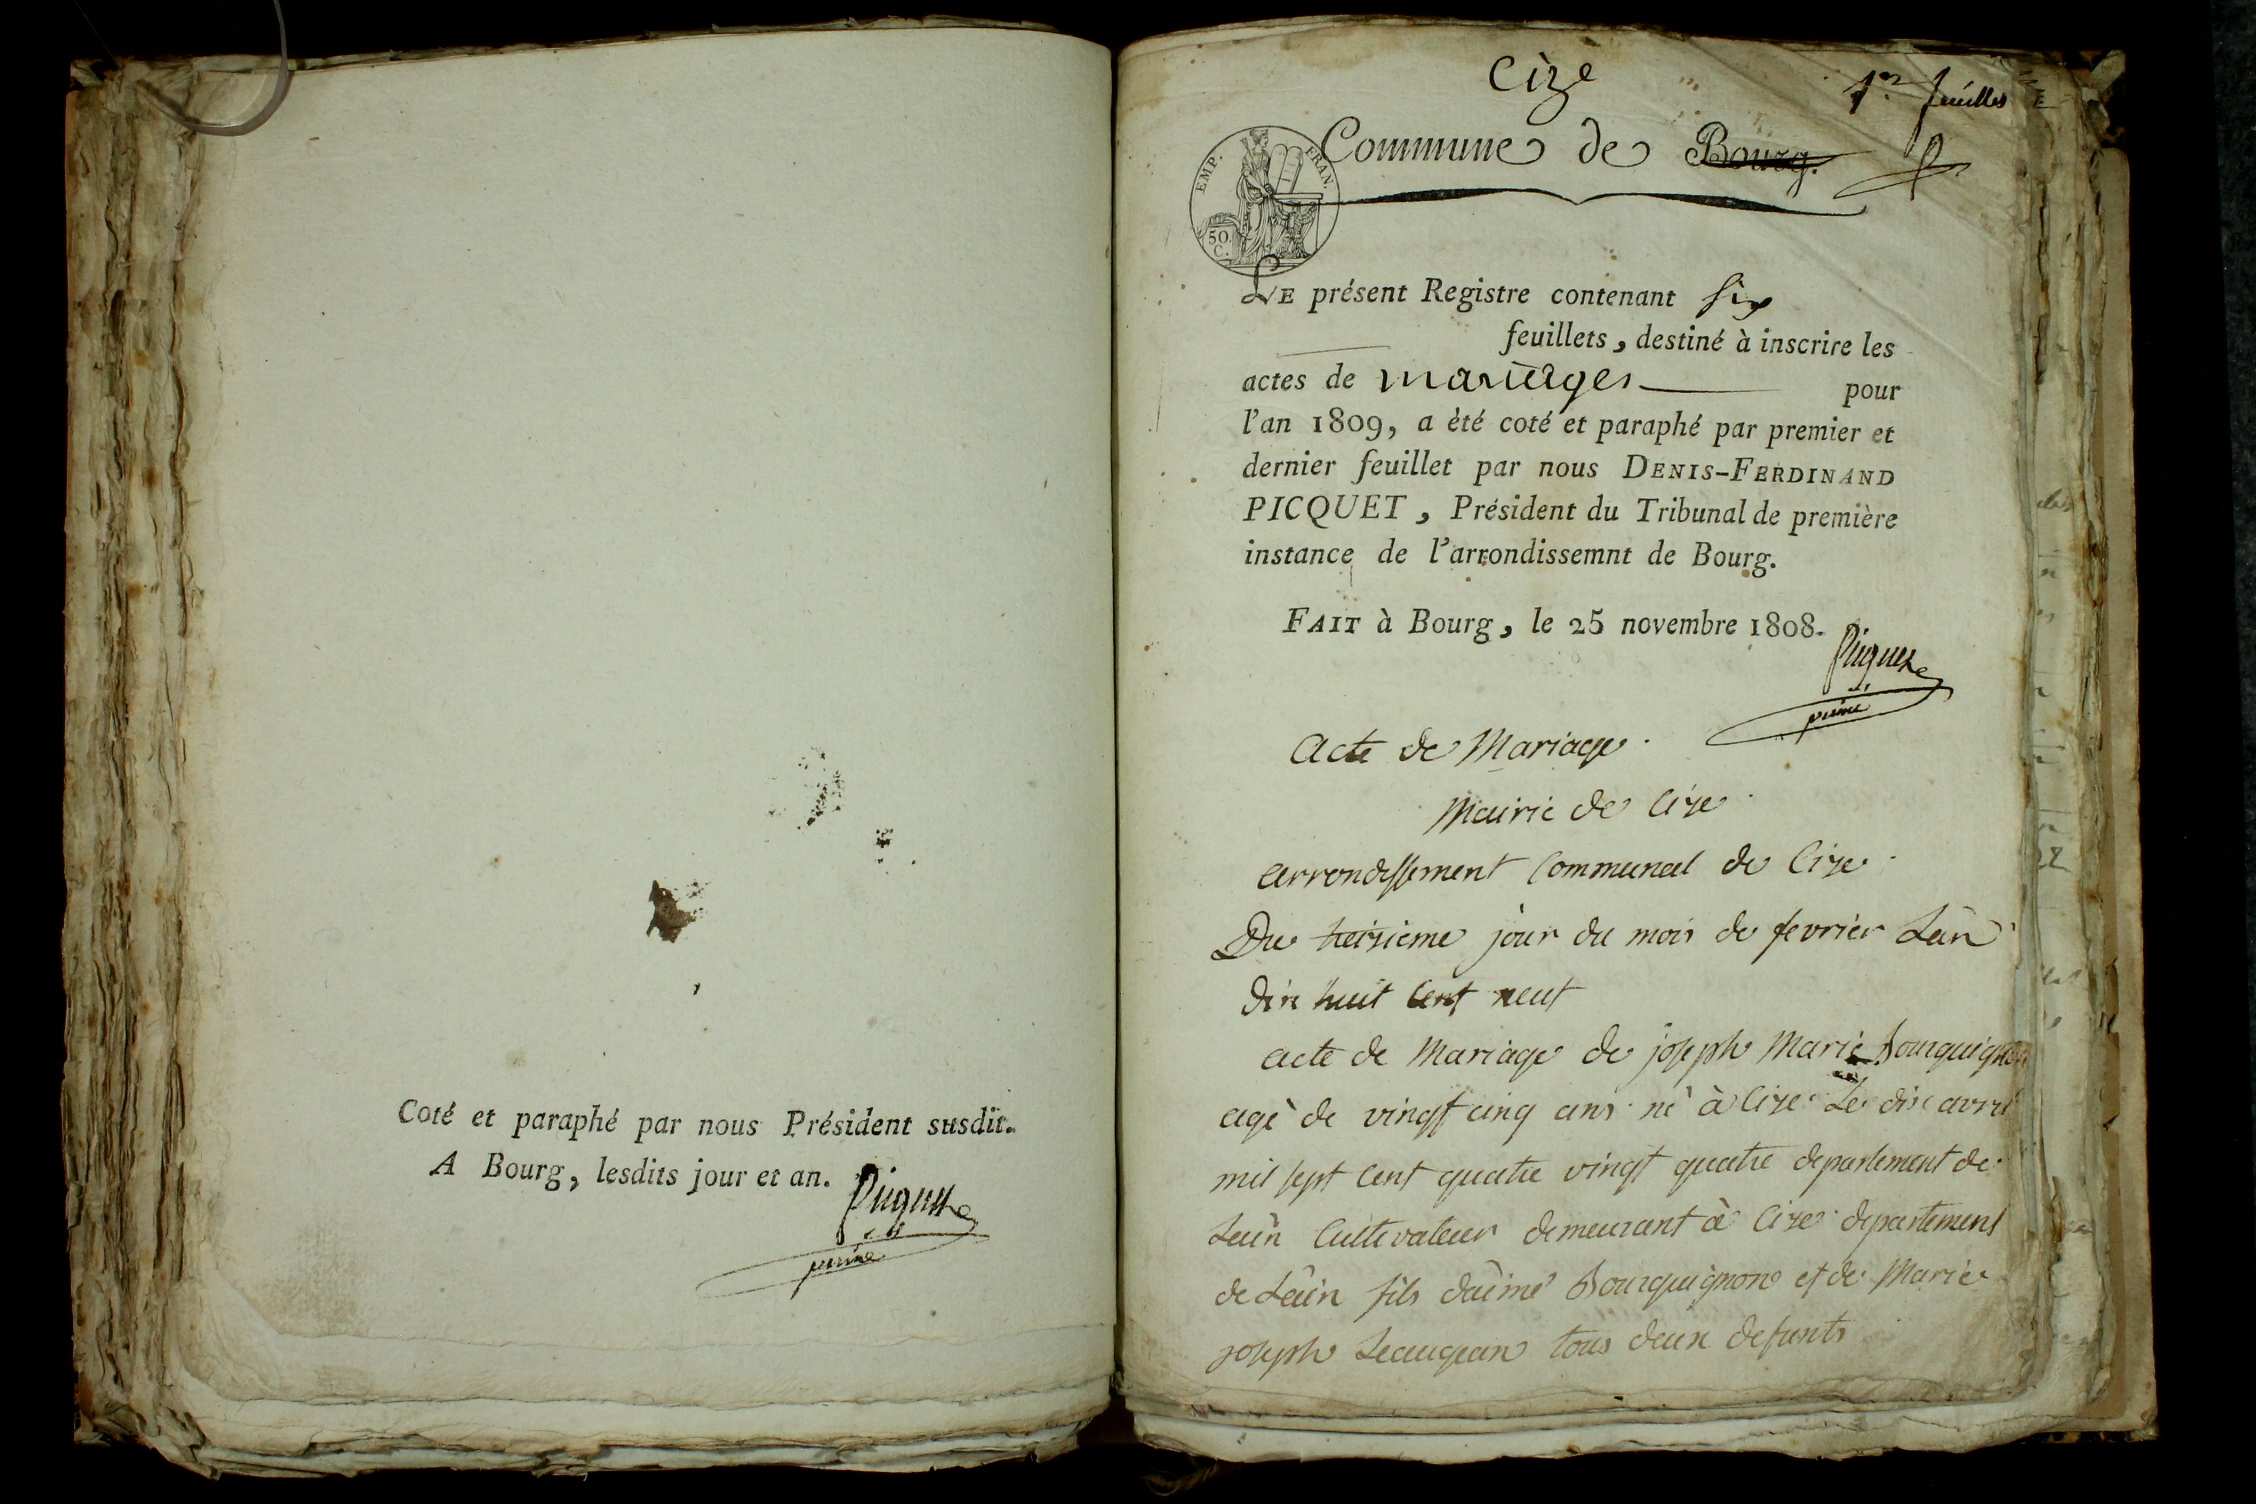 Coté et paraphé par nous Président susdit.
A Bourg, lesdits jour et an.
Picquet
Cize
1er feuillet
Commune de Bourg.
EMP. FRAN.
50 C.
LE présent Registre contenant six
feuillets, destiné à inscrire les
actes de mariages pour
l'an 1809, a été coté et paraphé par premier et
dernier feuillet par nous DENIS-FERDINAND
PICQUET, Président du Tribunal de première
instance de l'arrondissemnt de Bourg.
FAIT à Bourg, le 25 novembre 1808.
Picquet
acte de Mariage
Mairie de Cize
arrondissement Communal de Cize
Du treizieme jour du mois de fevrier Lan
dix huit Cent neuf
acte de Mariage de joseph Marie Bourguignon
agé de vingt cinq ans né à Cize Le dix avril
mil sept Cent quatre vingt quatre departement de
Lain Cultivateur demeurant à Cize departement
de Lain fils daimé Bourguignon et de Marie
joseph tous deux defunts